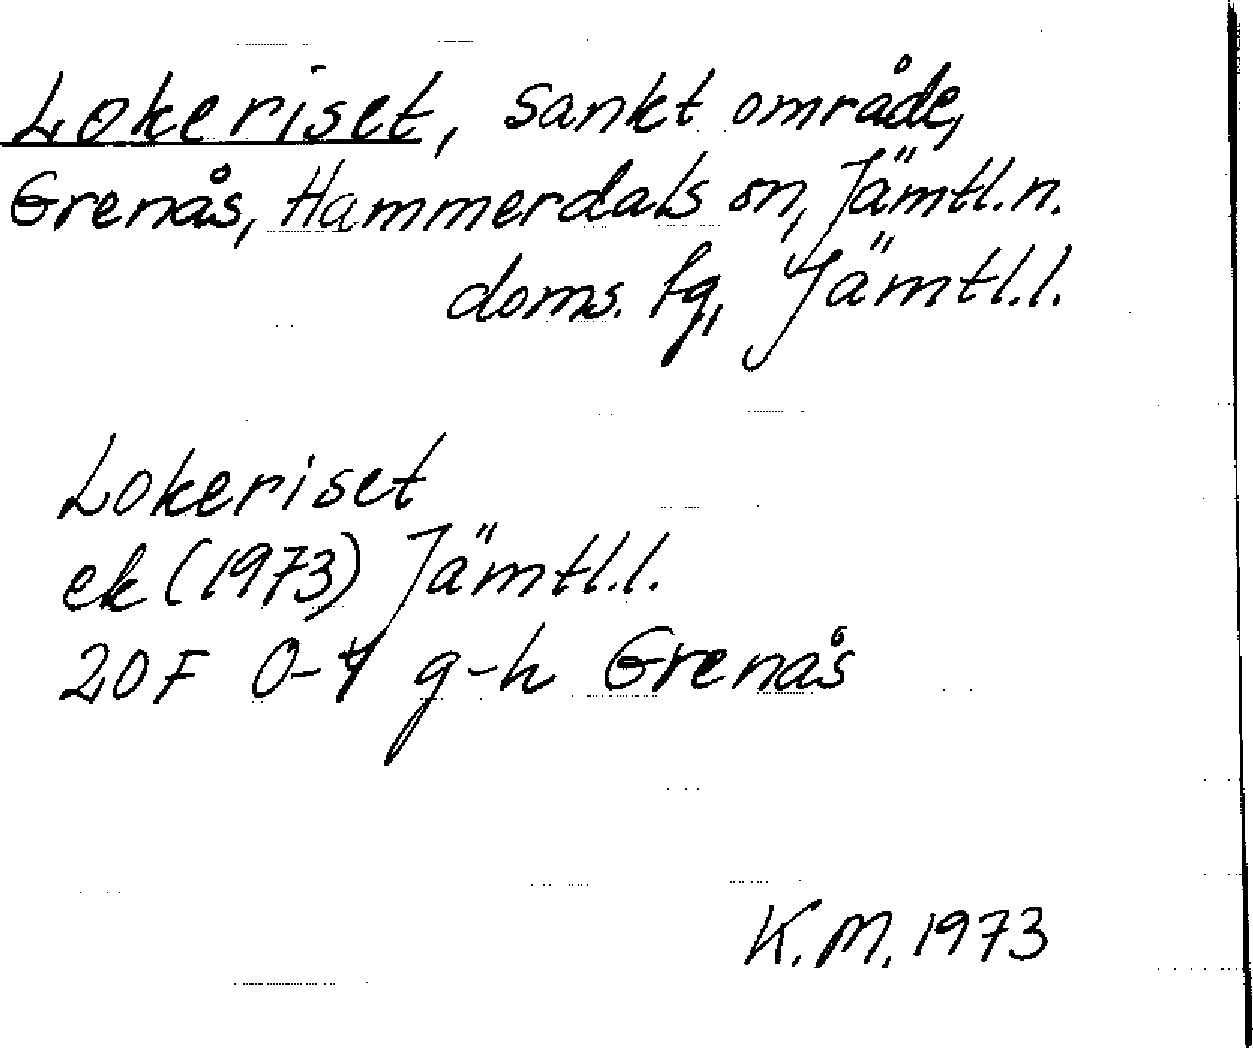 Lokeriset, sankt område,
Grenås, Hammerdals sn, Jämtl.n.
doms. fg, Jämtl.l.
Lokeriset
ek (1973) Jämtl.l.
20F 0-1 g-h Grenås
K.M. 1973